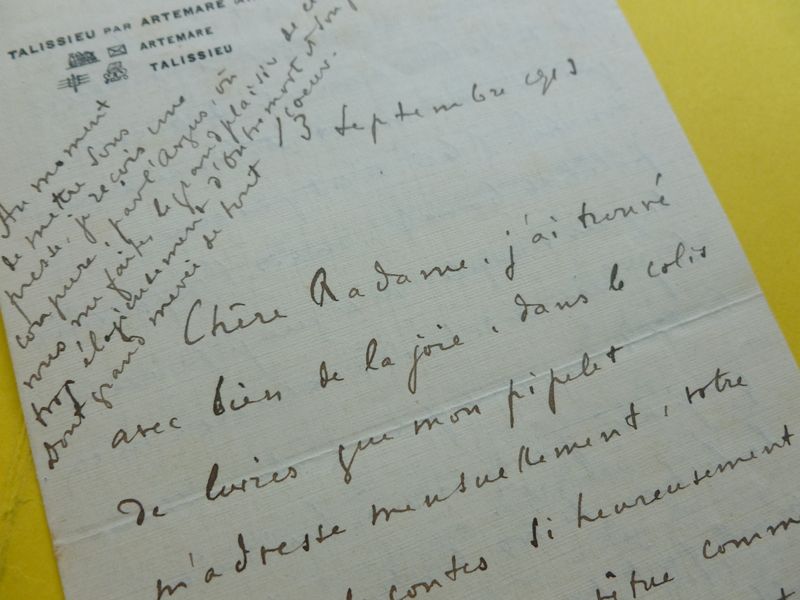 TALISSIEU PAR ARTEMARE
ARTEMARE
TALISSIEU
Au moment
de mettre sous
presse, je reçois une
coupure, par l'Argus, où
vous me faites le grand plaisir de
trop élogieusement d'Outremort et
Dont grand merci de tout coeur.
13 Septembre
Chère Madame, j'ai trouvé
avec bien de la joie, dans le colis
de livres que mon pipelet
m'adresse mensuellement, votre
contes si heureusement